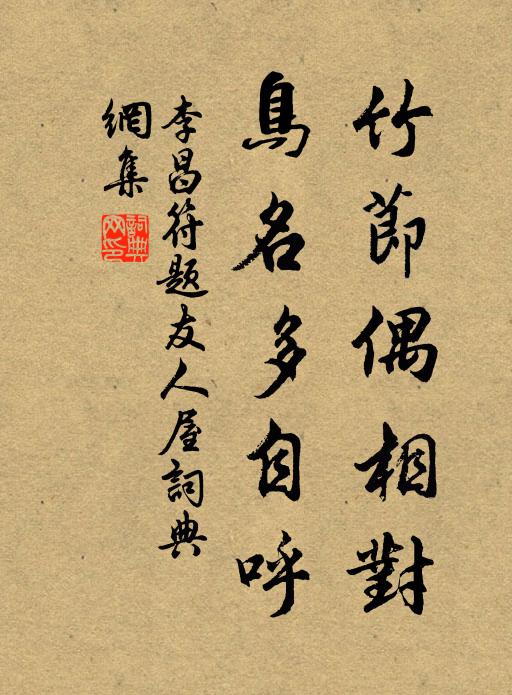 竹節偶相對
鳥名多自呼
李昌符題友人屋詞典
網集
詞典網印